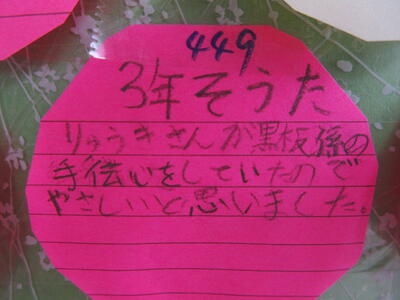 449
3年そうた
りゅうきさんが黒板係の
手伝いをしていたので
やさしいと思いました。